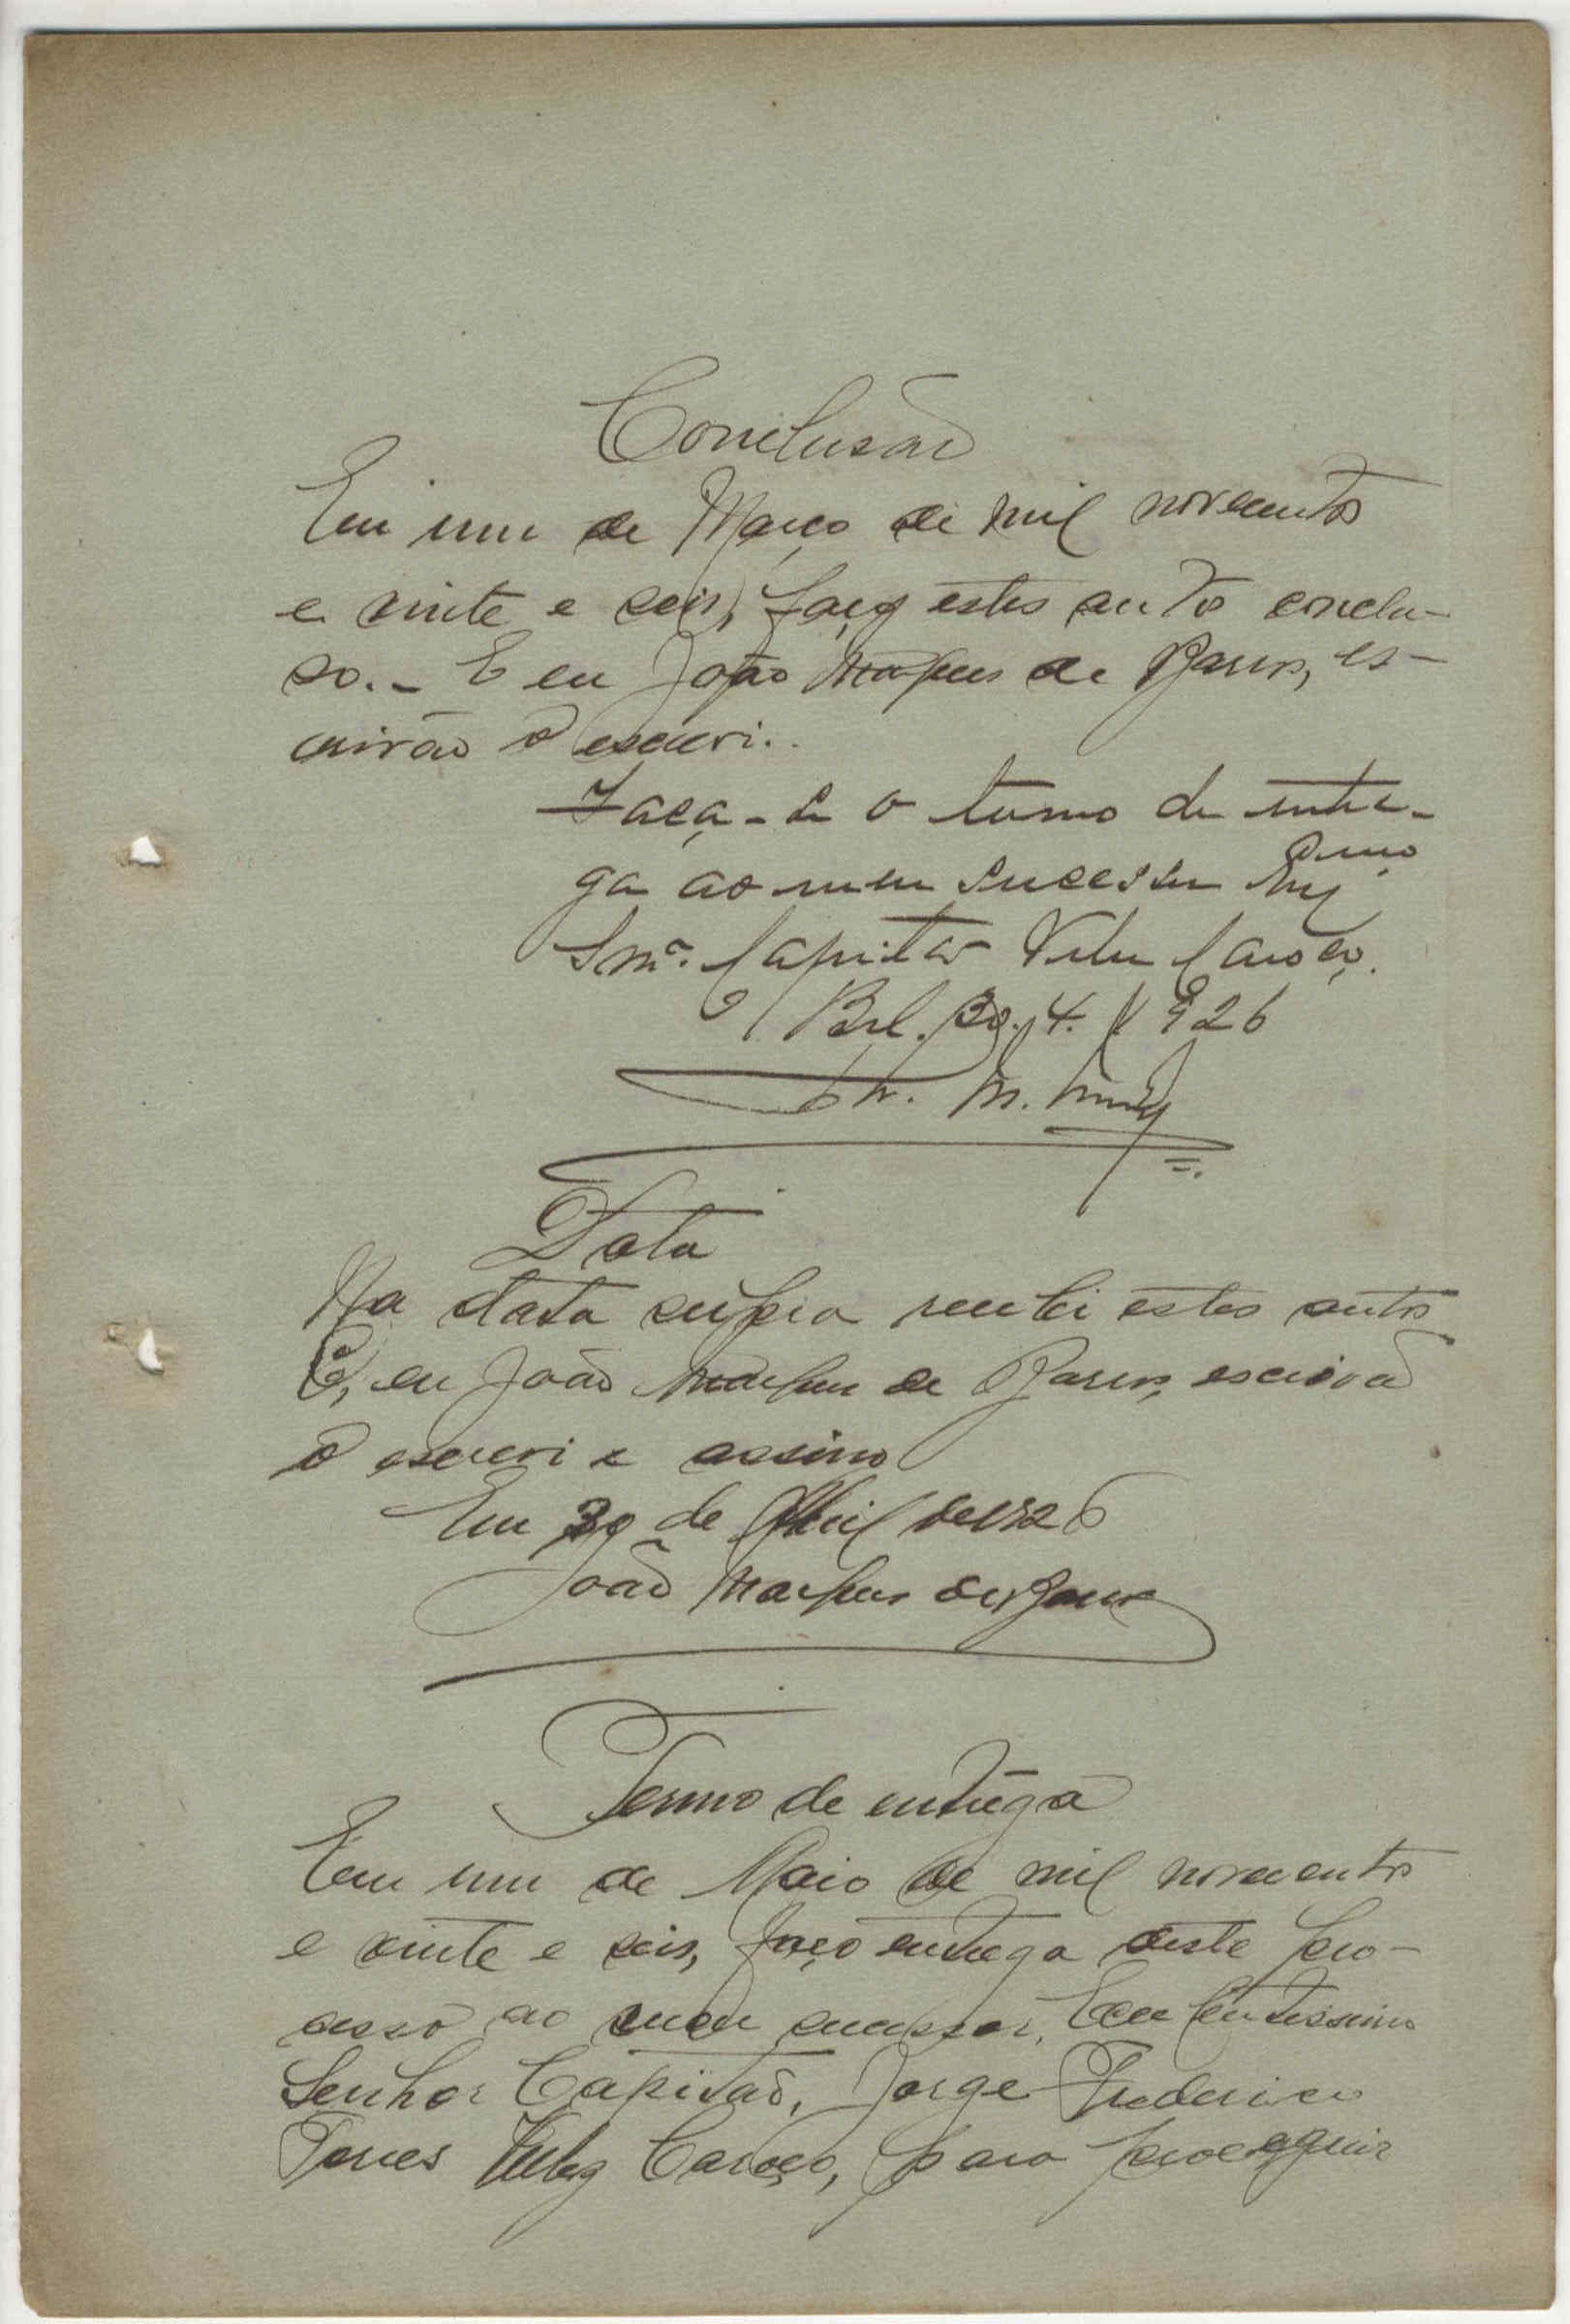 Conclusão
Em um de Março de mil novecentos
e vinte e seis, faço estes autos conclu-
so.- E eu João Marques de Barros, es-
crivão o escrevi..
Faça-se o termo de entre-
ga ao meu sucessor Exmo
Snr. Capitão Velez Caroço.
Bol. 30.4.926
Data
Na data supra recebi estes autos
E, eu João Marques de Barros, escrivão
o escrevi e assino
Em 30 de Abril de 1926
João Marques de Barros
Termo de entrega
Em um de Maio de mil novecentos
e vinte e seis, faço entrega deste pro-
cesso ao meu sucessor, Excelentissimo
Senhor Capitão, Jorge Frederico
Torres Velez Caroço, para proseguir